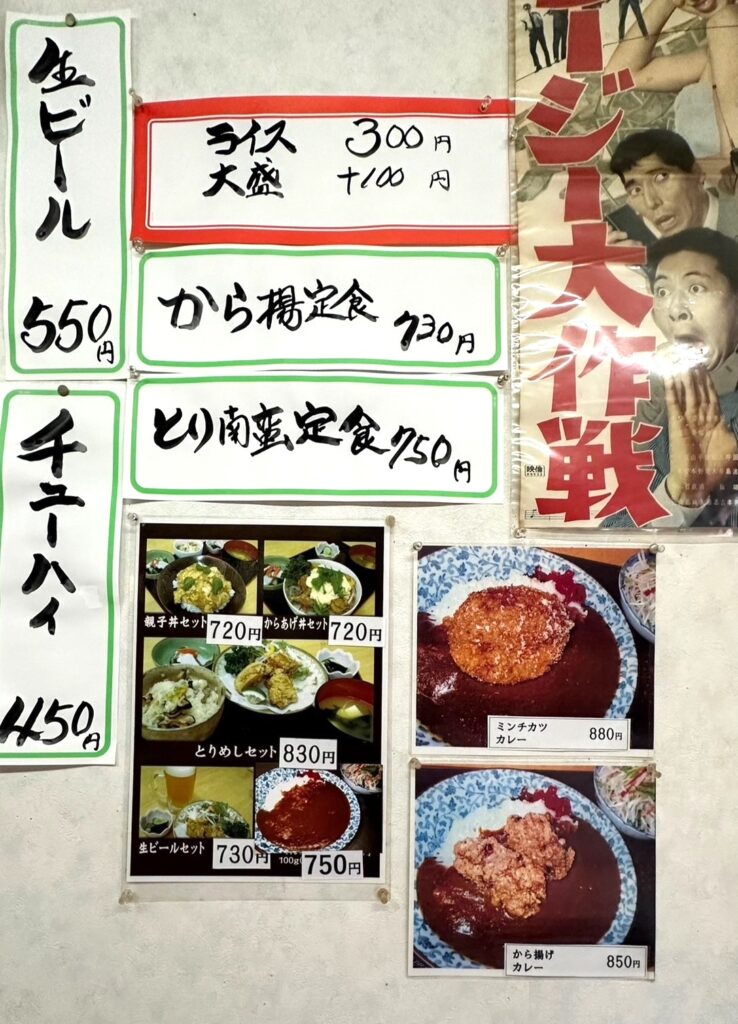 生ビール
550円
チューハイ
450円
ライス 300円
大盛 +100円
から揚定食 730円
とり南蛮定食 750円
親子丼セット 720円
からあげ丼セット 720円
とりめしセット 830円
生ビールセット 730円
100g
750円
ミンチカツ
カレー 880円
から揚げ
カレー 850円
ージー大作戦
映倫